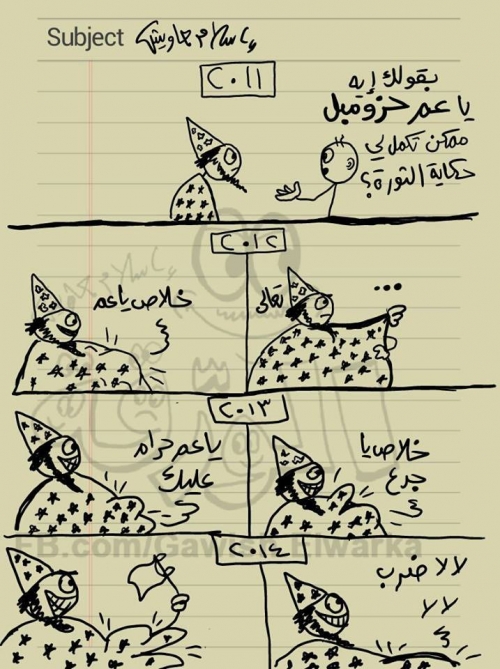 Subject
يا سلام يا جاويش
٢٠١١
بقولك إيه
يا عم حزومبل
ممكن تكمل لي
حكاية الثورة؟
٢٠١٢
...
تعالى
خلاص يا عم
٢٠١٣
خلاص يا
جدع
يا عم حرام
عليك
٢٠١٤
لا لا ضرب
لا لا
FB.com/Gawish.Elwarka